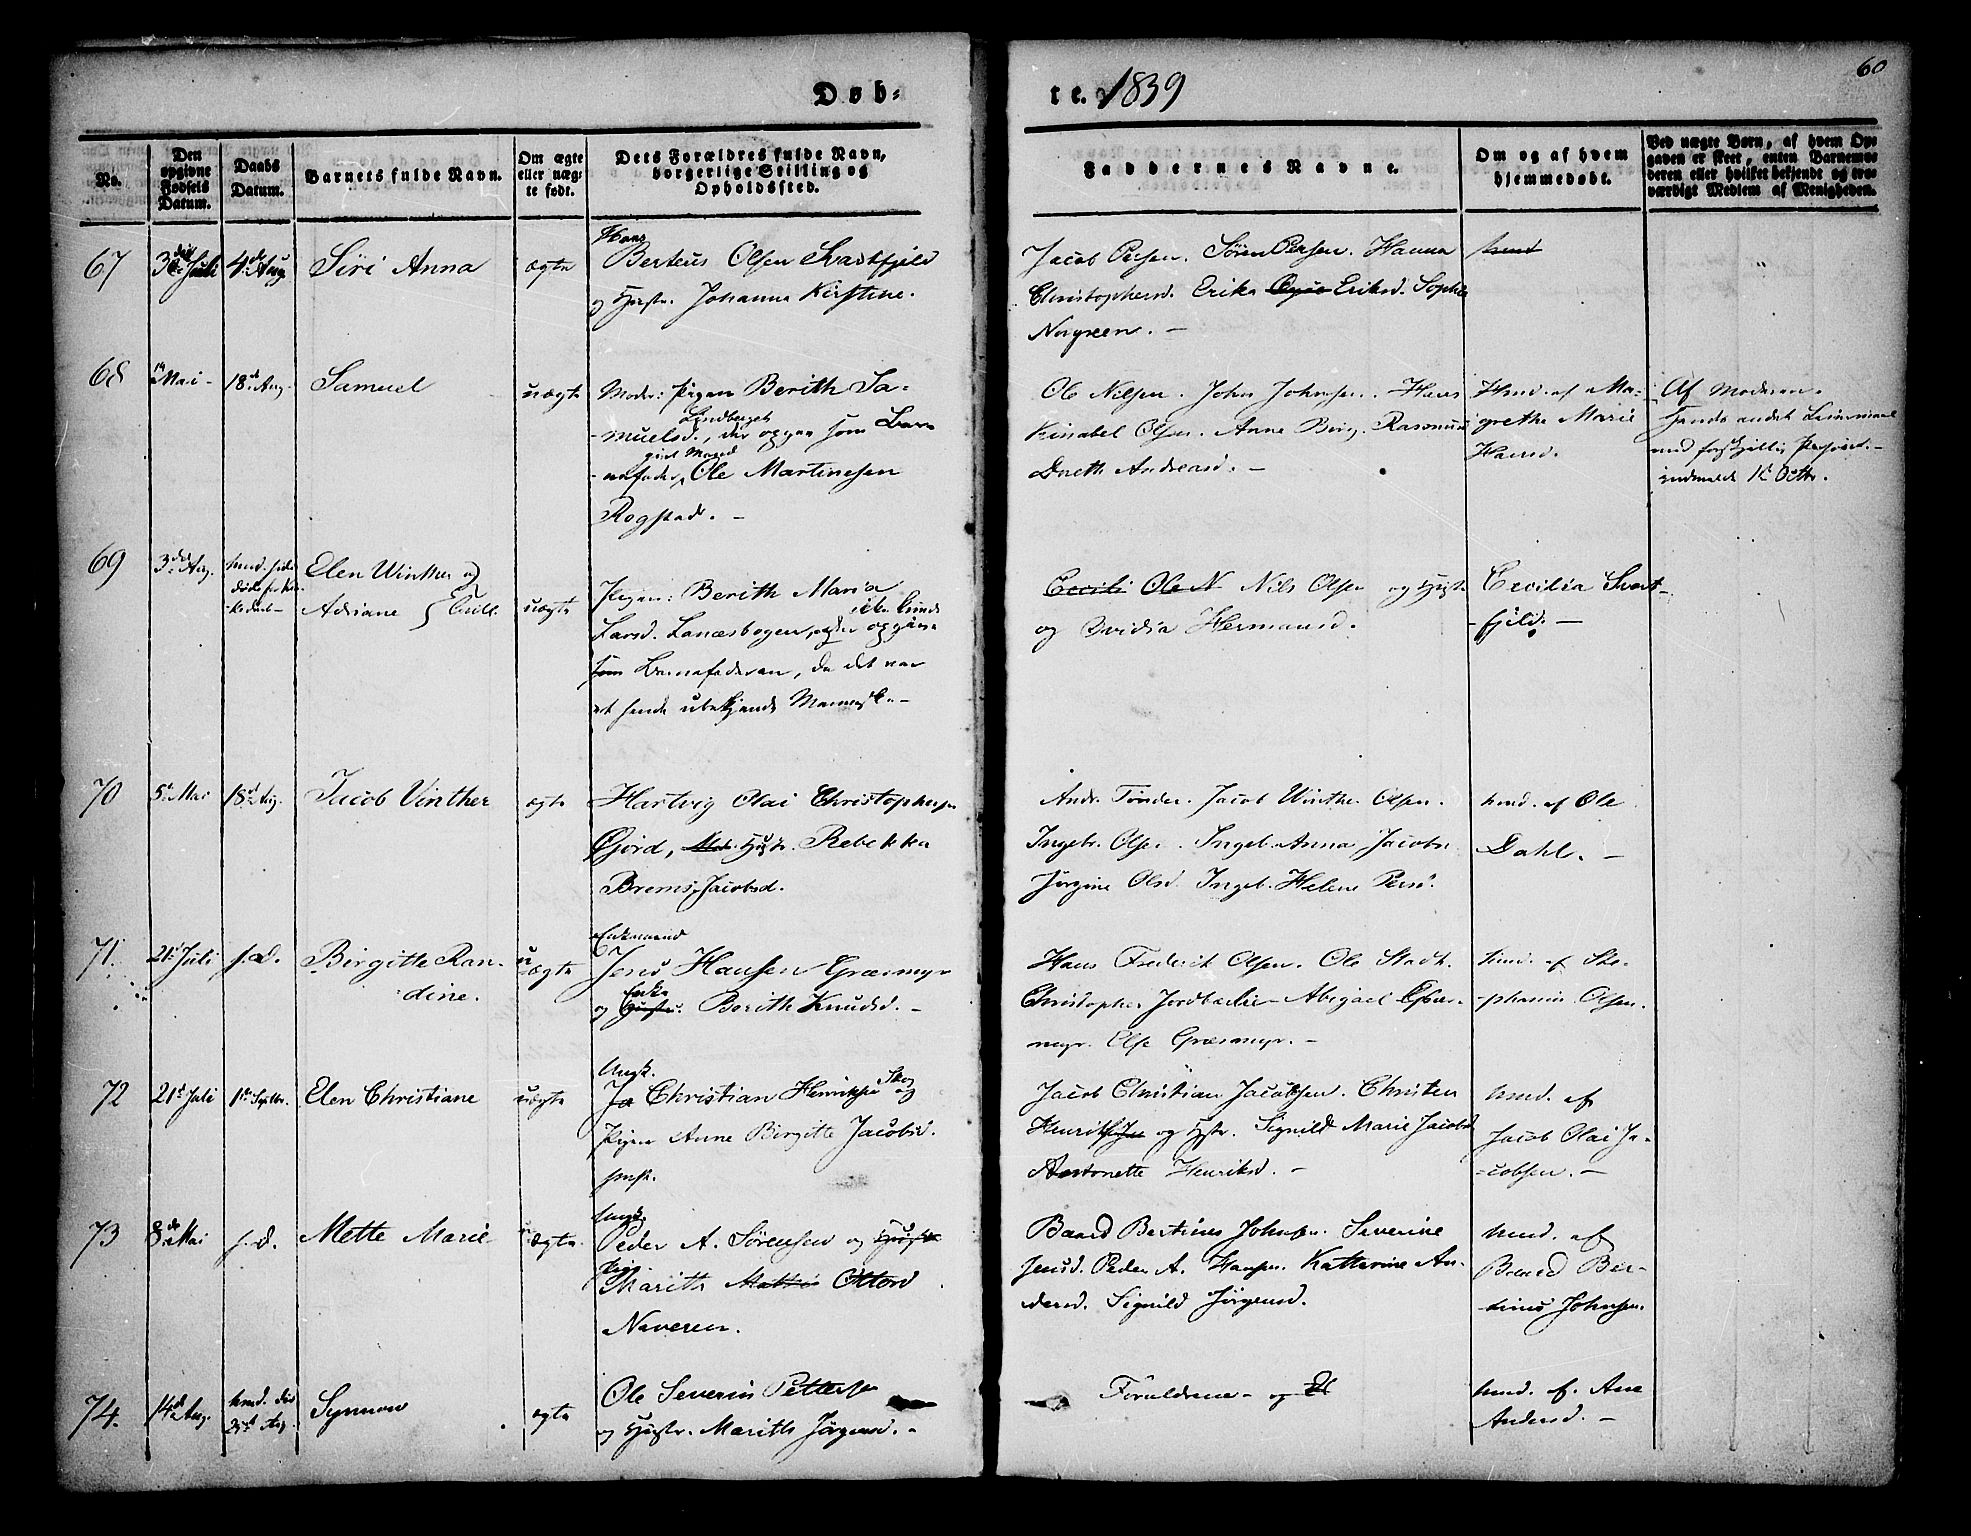 Døb-
te. 1839
60
No.
Den opgivne Fødsels Datum.
Daabs Datum.
Barnets fulde Navn.
Om ægte eller uægte født.
Dets Forældres fulde Navn, borgerlige Stilling og Opholdssted.
Faddernes Navne.
Om og af hvem hjemmedøbt.
Ved uægte Børn, af hvem Opgaven er skeet, enten Barnemoderen eller hvilket bekjendt og troværdigt Medlem af Menigheden.
67
4de Aug
Siri Anna
ægte
Hans
Berteus Olsen Svartfjeld
og Hustr. Johanna Kirstine.
Jacob Peersen. Søren Peersen. Hanna
Christophersd. Erika Eriksd. Sophie
Norgreen. –
68
14 Mai –
18de Aug.
Samuel
uægte
Moder: Pigen Berith Sa-
Lindberget
-muelsd., der opgav som Bar-
gift Mand
-nefader, Ole Martinesen
Rogstad. –
Ole Nilsen. John Johnsen. Hans
Kinabel Olsen. Anne Berg. Rasmus
Doreth Andreasd. –
Hmd. af Ma-
grethe Marie
Hansd.
Af Moderen.
hendes andet Leiermaal
med forskjellig Person. –
indmeldt 12 Octbr.
69
3de Aug.
Elen Winther og
Adriane } Tvill.
uægte
Pigen: Berith Maria
ikke kunde
Larsd. Lanæsbogen, opgive
som Barnefaderen, da det var
et hende ubekjendt Menneske –
Cecili Ole N Nils Olsen og Hustr
og Ovidia Hermansd.
Cecilia Svart-
-fjeld. –
70
5te Mai
18de Aug.
Jacob Vinther
ægte
Hartvig Olai Christophersen
Gjørd, Hustr. Rebekka
Brems, Jacobsd.
Andr. Tønder. Jacob Winther Olsen.
Ingebr. Olsen. Ingeb. Anna Jacobs.
Jørgine Olsd. Ingeb. Helene Persd.
hmd. af Ole
Dahl. –
71.
21de Juli
s. D.
Birgitte Ran-
-dine.
uægte
Enkemand
Jens Hansen Græsmyr
Enke
og Hustr. Berith Knudsd. –
Hans Frederik Olsen. Ole Stadt.
Christopher Jordbærlie – Abigael
myr. Else Græsmyr. –
hmd. af Ste-
-phanus Olsen.
72
21de Juli
1ste Septbr.
Elen Christiane
uægte
Ungk.
Ja Christian Henriksen Skog
Pigen Anne Birgitte Jacobsd.
smst.
Jacob Christian Jacobsen. Christen
Henriksen og Hstr. Signild Marie Jacobsd
Antonette Henriksd. –
hmd. af
Jacob Olai Ja-
-cobsen. –
73
8de Mai
s. d.
Mette Marie
uægte
Ungk
Peder A. Sørensen og Hustr
Pige
Marith Mathis Ottosd
Naveren.
Baard Bertinus Johnsen. Severine
Jensd. Peder A. Hansen. Katherine An-
dersd. Signild Jørgensd.
hmd. af
Baard Ber-
tinus Johnsen.
74.
14de Aug.
hmd. den
25de Aug.
Synnow
ægte
Ole Severin Pettersen
og Hustr. Marith Jørgensd. –
Forældrene – og
hmd. af. Ane
Andersd. –